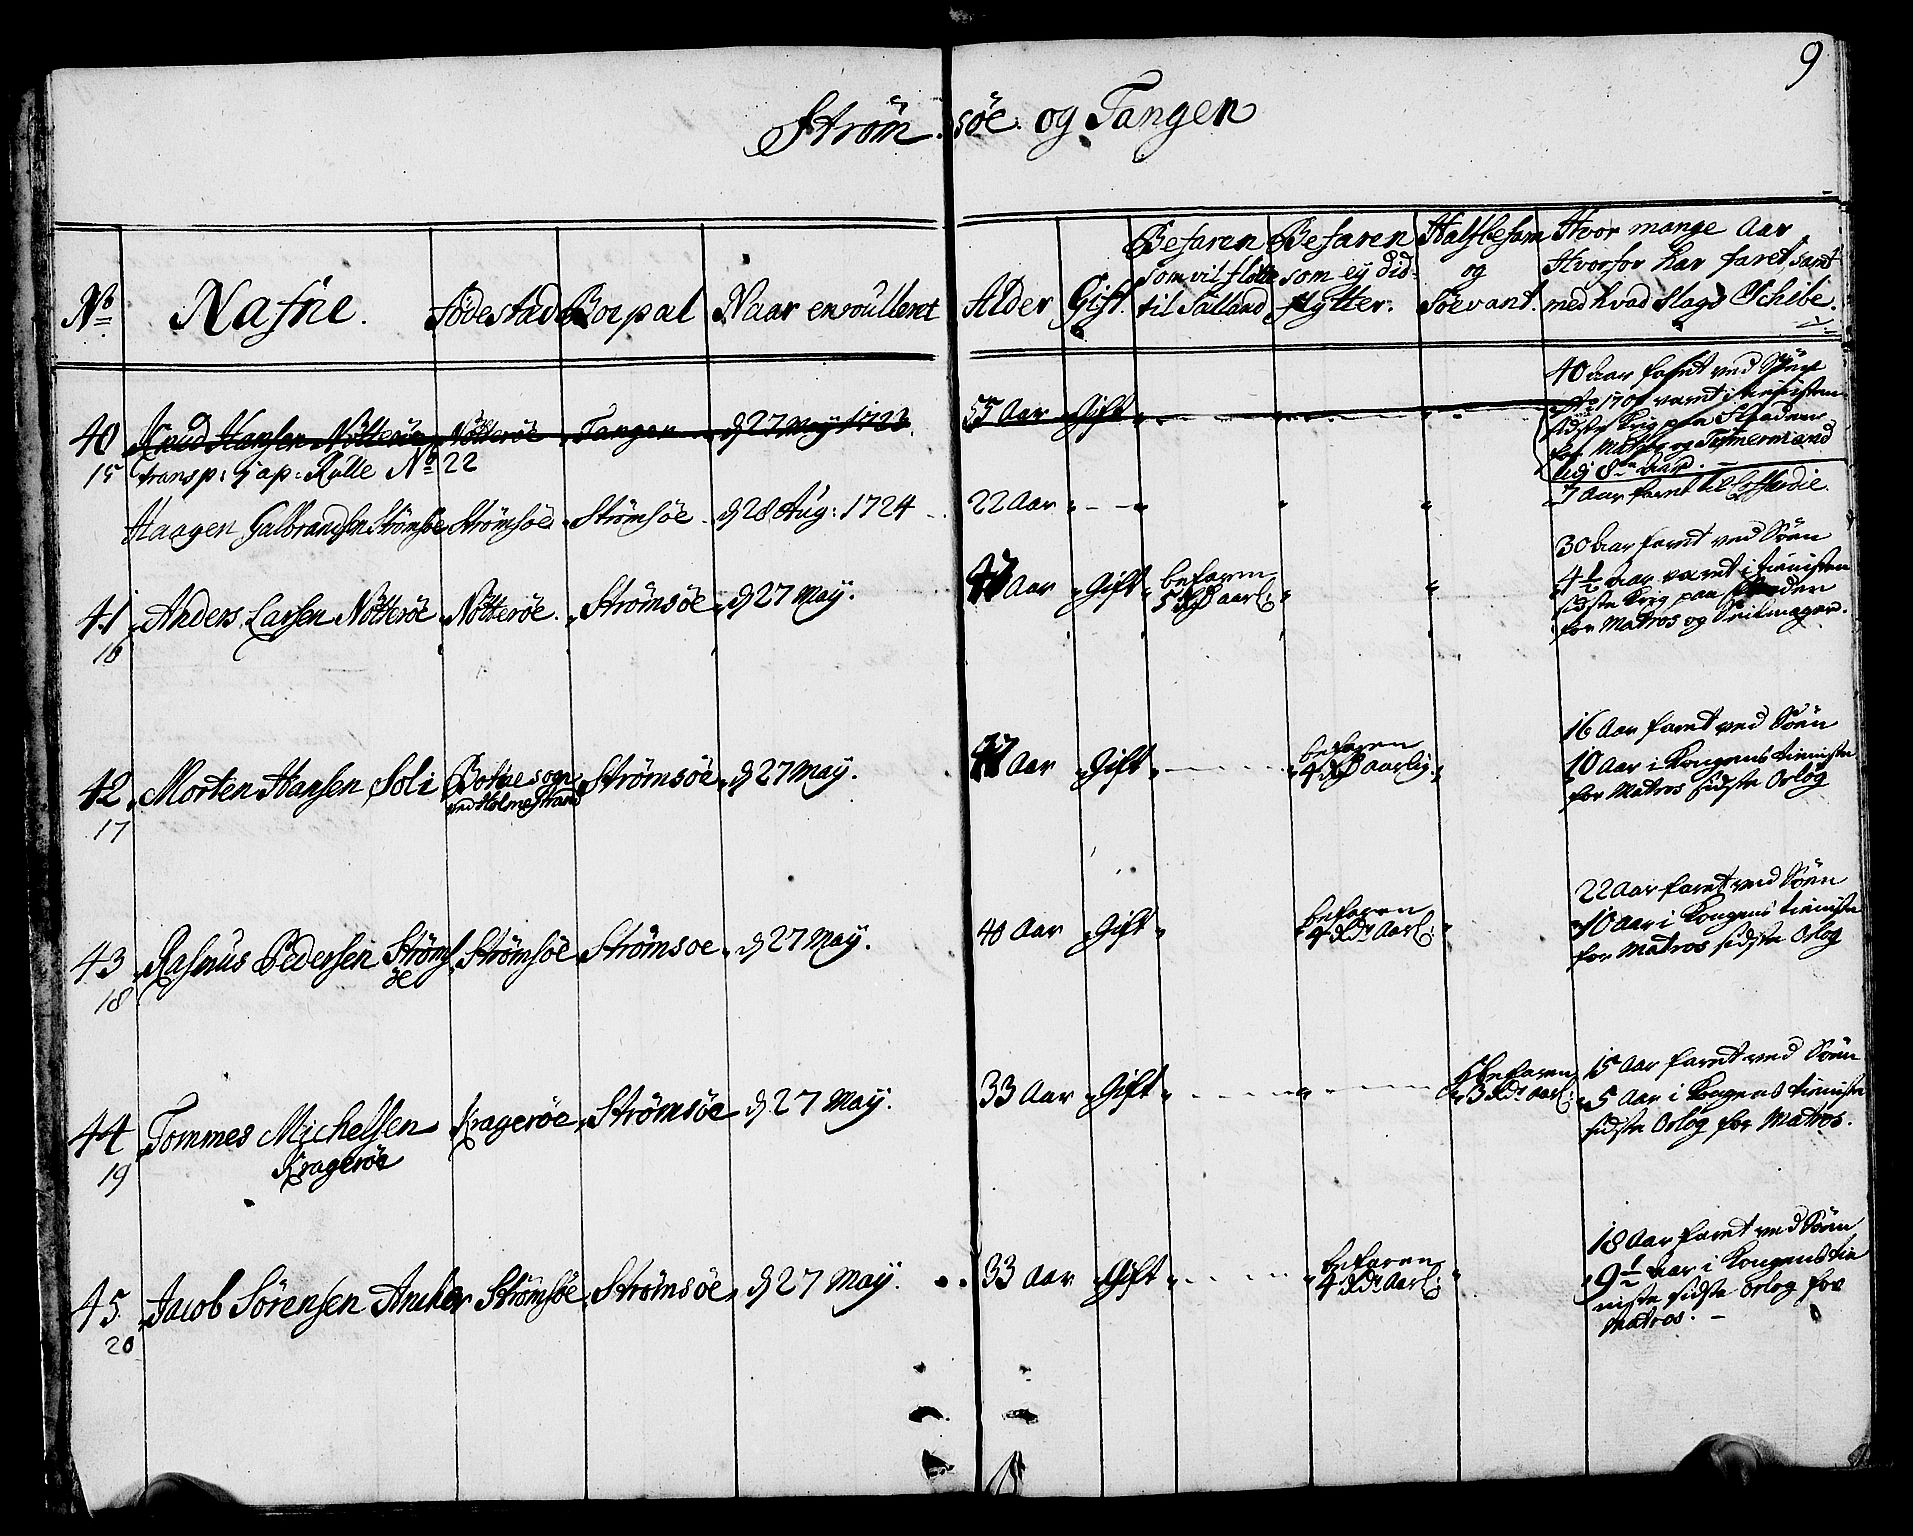 9
Ström söe og Tangen
No Nafne. Födestad Boepæl Naar enroulleret Alder Gift. Befaren som vil flötte til Sälland Befaren som ey did flytter. Halfbefarn og Söevant. Hvor mange Aar Hvorfor har faret, samt med hvad slags Schibe.
40 Knud Hansen Nötteröe Nötteröe Tangen d 27 May 1723. 55 Aar Gift
40 Aar faret ved Söen
Ao 1700 været i tienisten
sidste Krig paa Flaaden
for Matros og Tömermand
udj 8te Aar.
15 transp: j ap: Rulle No 22
Haagen Gulbrandsen Strömsöe Strömsöe Strömsöe d 28 Aug: 1724 22 Aar
7 Aar faret til Cofferdie.
41 Anders Larsen Nötteröe Nötteröe. Strömsöe d 27 May. Aar Gift befaren 5 Rd aarl:
16
30 Aar faret ved Söen
4 1/2 Aar været i tienisten
sidste Krig paa
for Matros og Seilmager.
42 Morten Hansen Soli Botne sogn ved Holmestrand Strömsöe d 27 May. 47 Aar Gift befaren 4 Rd Aarlig.
17
16 Aar faret ved Söen
10 Aar i Kongens tieniste
for Matros sidste Orlog
43 Rasmus Pedersen Ströms öe Strömsöe Strömsoe d 27 May. 40 Aar Gift befaren 4 Rdr Aarl:
18
22 Aar faret ved Söen
10 Aar i Kongens tieniste
for Matros sidste Orlog
44 Tommes Michelsen Krageröe Krageröe Strömsöe d 27 May. 33 Aar Gift befaren 3 Rdr Aarl:
19
15 Aar faret ved Söen
5 Aar i Kongens tieniste
sidste Orlog for Matros.
45 Jacob Sörensen Anker Strömsöe Strömsöe d 27 May. 33 Aar Gift befaren 4 Rdr Aarl:
20
18 Aar faret ved Söen
9 1/2 Aar i Kongens tie
niste sidste Orlog for
Matros.